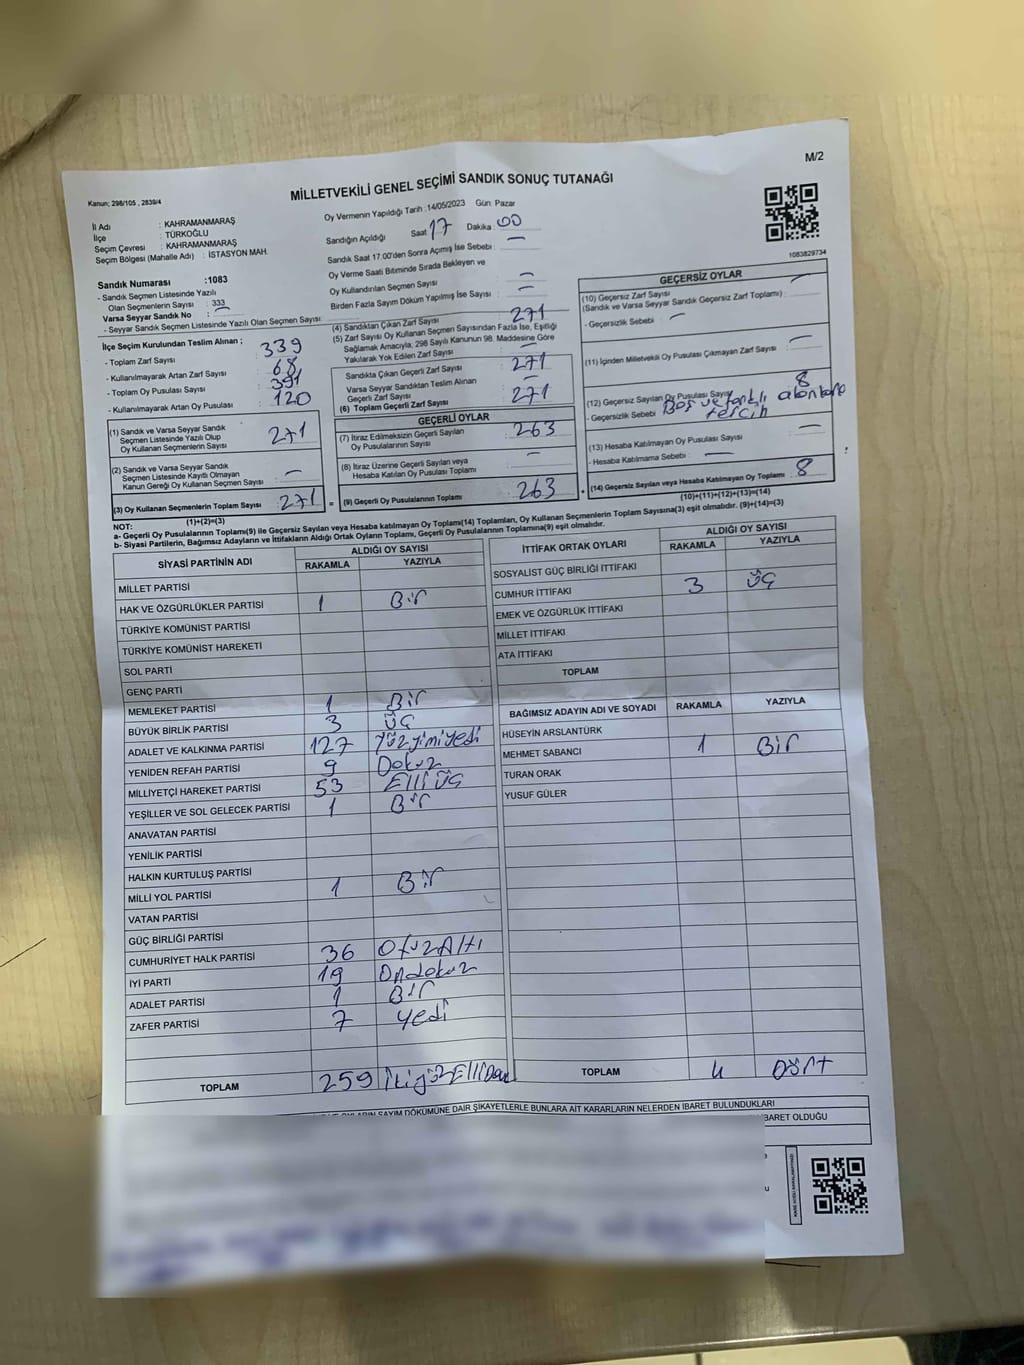 M/2
MİLLETVEKİLİ GENEL SEÇİMİ SANDIK SONUÇ TUTANAĞI
Kanun; 298/105 , 2839/4
İl Adı : KAHRAMANMARAŞ
İlçe : TÜRKOĞLU
Seçim Çevresi : KAHRAMANMARAŞ
Seçim Bölgesi (Mahalle Adı) : İSTASYON MAH.
Oy Vermenin Yapıldığı Tarih : 14/05/2023 Gün: Pazar
Sandığın Açıldığı Saat 17 Dakika : 00
Sandık Saat 17.00'den Sonra Açımış İse Sebebi : —
Oy Verme Saati Bitiminde Sırada Bekleyen ve
Oy Kullandırılan Seçmen Sayısı : —
Birden Fazla Sayım Döküm Yapılmış İse Sayısı : —
1083829734
Sandık Numarası :1083
- Sandık Seçmen Listesinde Yazılı
Olan Seçmenlerin Sayısı : 333
Varsa Seyyar Sandık No : —
- Seyyar Sandık Seçmen Listesinde Yazılı Olan Seçmen Sayısı:
İlçe Seçim Kurulundan Teslim Alınan ;
- Toplam Zarf Sayısı : 339
- Kullanılmayarak Artan Zarf Sayısı : 68
- Toplam Oy Pusulası Sayısı : 391
- Kullanılmayarak Artan Oy Pusulası : 120
(1) Sandık ve Varsa Seyyar Sandık
Seçmen Listesinde Yazılı Olup
Oy Kullanan Seçmenlerin Sayısı : 271
(2) Sandık ve Varsa Seyyar Sandık
Seçmen Listesinde Kayıtlı Olmayan
Kanun Gereği Oy Kullanan Seçmen Sayısı : —
(3) Oy Kullanan Seçmenlerin Toplam Sayısı : 271
(1)+(2)=(3)
(4) Sandıktan Çıkan Zarf Sayısı : 271
(5) Zarf Sayısı Oy Kullanan Seçmen Sayısından Fazla İse, Eşitliği
Sağlamak Amacıyla, 298 Sayılı Kanunun 98. Maddesine Göre
Yakılarak Yok Edilen Zarf Sayısı : —
Sandıkta Çıkan Geçerli Zarf Sayısı : 271
Varsa Seyyar Sandıktan Teslim Alınan
Geçerli Zarf Sayısı : —
(6) Toplam Geçerli Zarf Sayısı : 271
GEÇERLİ OYLAR
(7) İtiraz Edilmeksizin Geçerli Sayılan
Oy Pusulalarının Sayısı : 263
(8) İtiraz Üzerine Geçerli Sayılan veya
Hesaba Katılan Oy Pusulası Toplamı : —
= (9) Geçerli Oy Pusulalarının Toplamı : 263
GEÇERSİZ OYLAR
(10) Geçersiz Zarf Sayısı : —
(Sandık ve Varsa Seyyar Sandık Geçersiz Zarf Toplamı) :
- Geçersizlik Sebebi : —
(11) İçinden Milletvekili Oy Pusulası Çıkmayan Zarf Sayısı : —
(12) Geçersiz Sayılan Oy Pusulası Sayısı : 8
- Geçersizlik Sebebi : Boş ve farklı
tercih
(13) Hesaba Katılmayan Oy Pusulası Sayısı : —
- Hesaba Katılmama Sebebi : —
+ (14) Geçersiz Sayılan veya Hesaba Katılmayan Oy Toplamı : 8
(10)+(11)+(12)+(13)=(14)
NOT:
a- Geçerli Oy Pusulalarının Toplamı(9) ile Geçersiz Sayılan veya Hesaba katılmayan Oy Toplamı(14) Toplamları, Oy Kullanan Seçmenlerin Toplam Sayısına(3) eşit olmalıdır. (9)+(14)=(3)
b- Siyasi Partilerin, Bağımsız Adayların ve İttifakların Aldığı Ortak Oyların Toplamı, Geçerli Oy Pusulalarının Toplamına(9) eşit olmalıdır.
SİYASİ PARTİNİN ADI ALDIĞI OY SAYISI
RAKAMLA YAZIYLA
MİLLET PARTİSİ
HAK VE ÖZGÜRLÜKLER PARTİSİ 1 Bir
TÜRKİYE KOMÜNİST PARTİSİ
TÜRKİYE KOMÜNİST HAREKETİ
SOL PARTİ
GENÇ PARTİ
MEMLEKET PARTİSİ 1 Bir
BÜYÜK BİRLİK PARTİSİ 3 üç
ADALET VE KALKINMA PARTİSİ 127 Yüzyimiyedi
YENİDEN REFAH PARTİSİ 9 Dokuz
MİLLİYETÇİ HAREKET PARTİSİ 53 Elli üç
YEŞİLLER VE SOL GELECEK PARTİSİ 1 Bir
ANAVATAN PARTİSİ
YENİLİK PARTİSİ
HALKIN KURTULUŞ PARTİSİ
MİLLİ YOL PARTİSİ 1 Bir
VATAN PARTİSİ
GÜÇ BİRLİĞİ PARTİSİ
CUMHURİYET HALK PARTİSİ 36 OtuzAltı
İYİ PARTİ 19 Ondokuz
ADALET PARTİSİ 1 Bir
ZAFER PARTİSİ 7 yedi
TOPLAM 259
İTTİFAK ORTAK OYLARI ALDIĞI OY SAYISI
RAKAMLA YAZIYLA
SOSYALİST GÜÇ BİRLİĞİ İTTİFAKI
CUMHUR İTTİFAKI 3 üç
EMEK VE ÖZGÜRLÜK İTTİFAKI
MİLLET İTTİFAKI
ATA İTTİFAKI
TOPLAM
BAĞIMSIZ ADAYIN ADI VE SOYADI RAKAMLA YAZIYLA
HÜSEYİN ARSLANTÜRK
MEHMET SABANCI 1 Bir
TURAN ORAK
YUSUF GÜLER
TOPLAM 4 Dört
OYLARIN SAYIM DÖKÜMÜNE DAİR ŞİKAYETLERLE BUNLARA AİT KARARLARIN NELERDEN İBARET BULUNDUKLARI
İBARET OLDUĞU